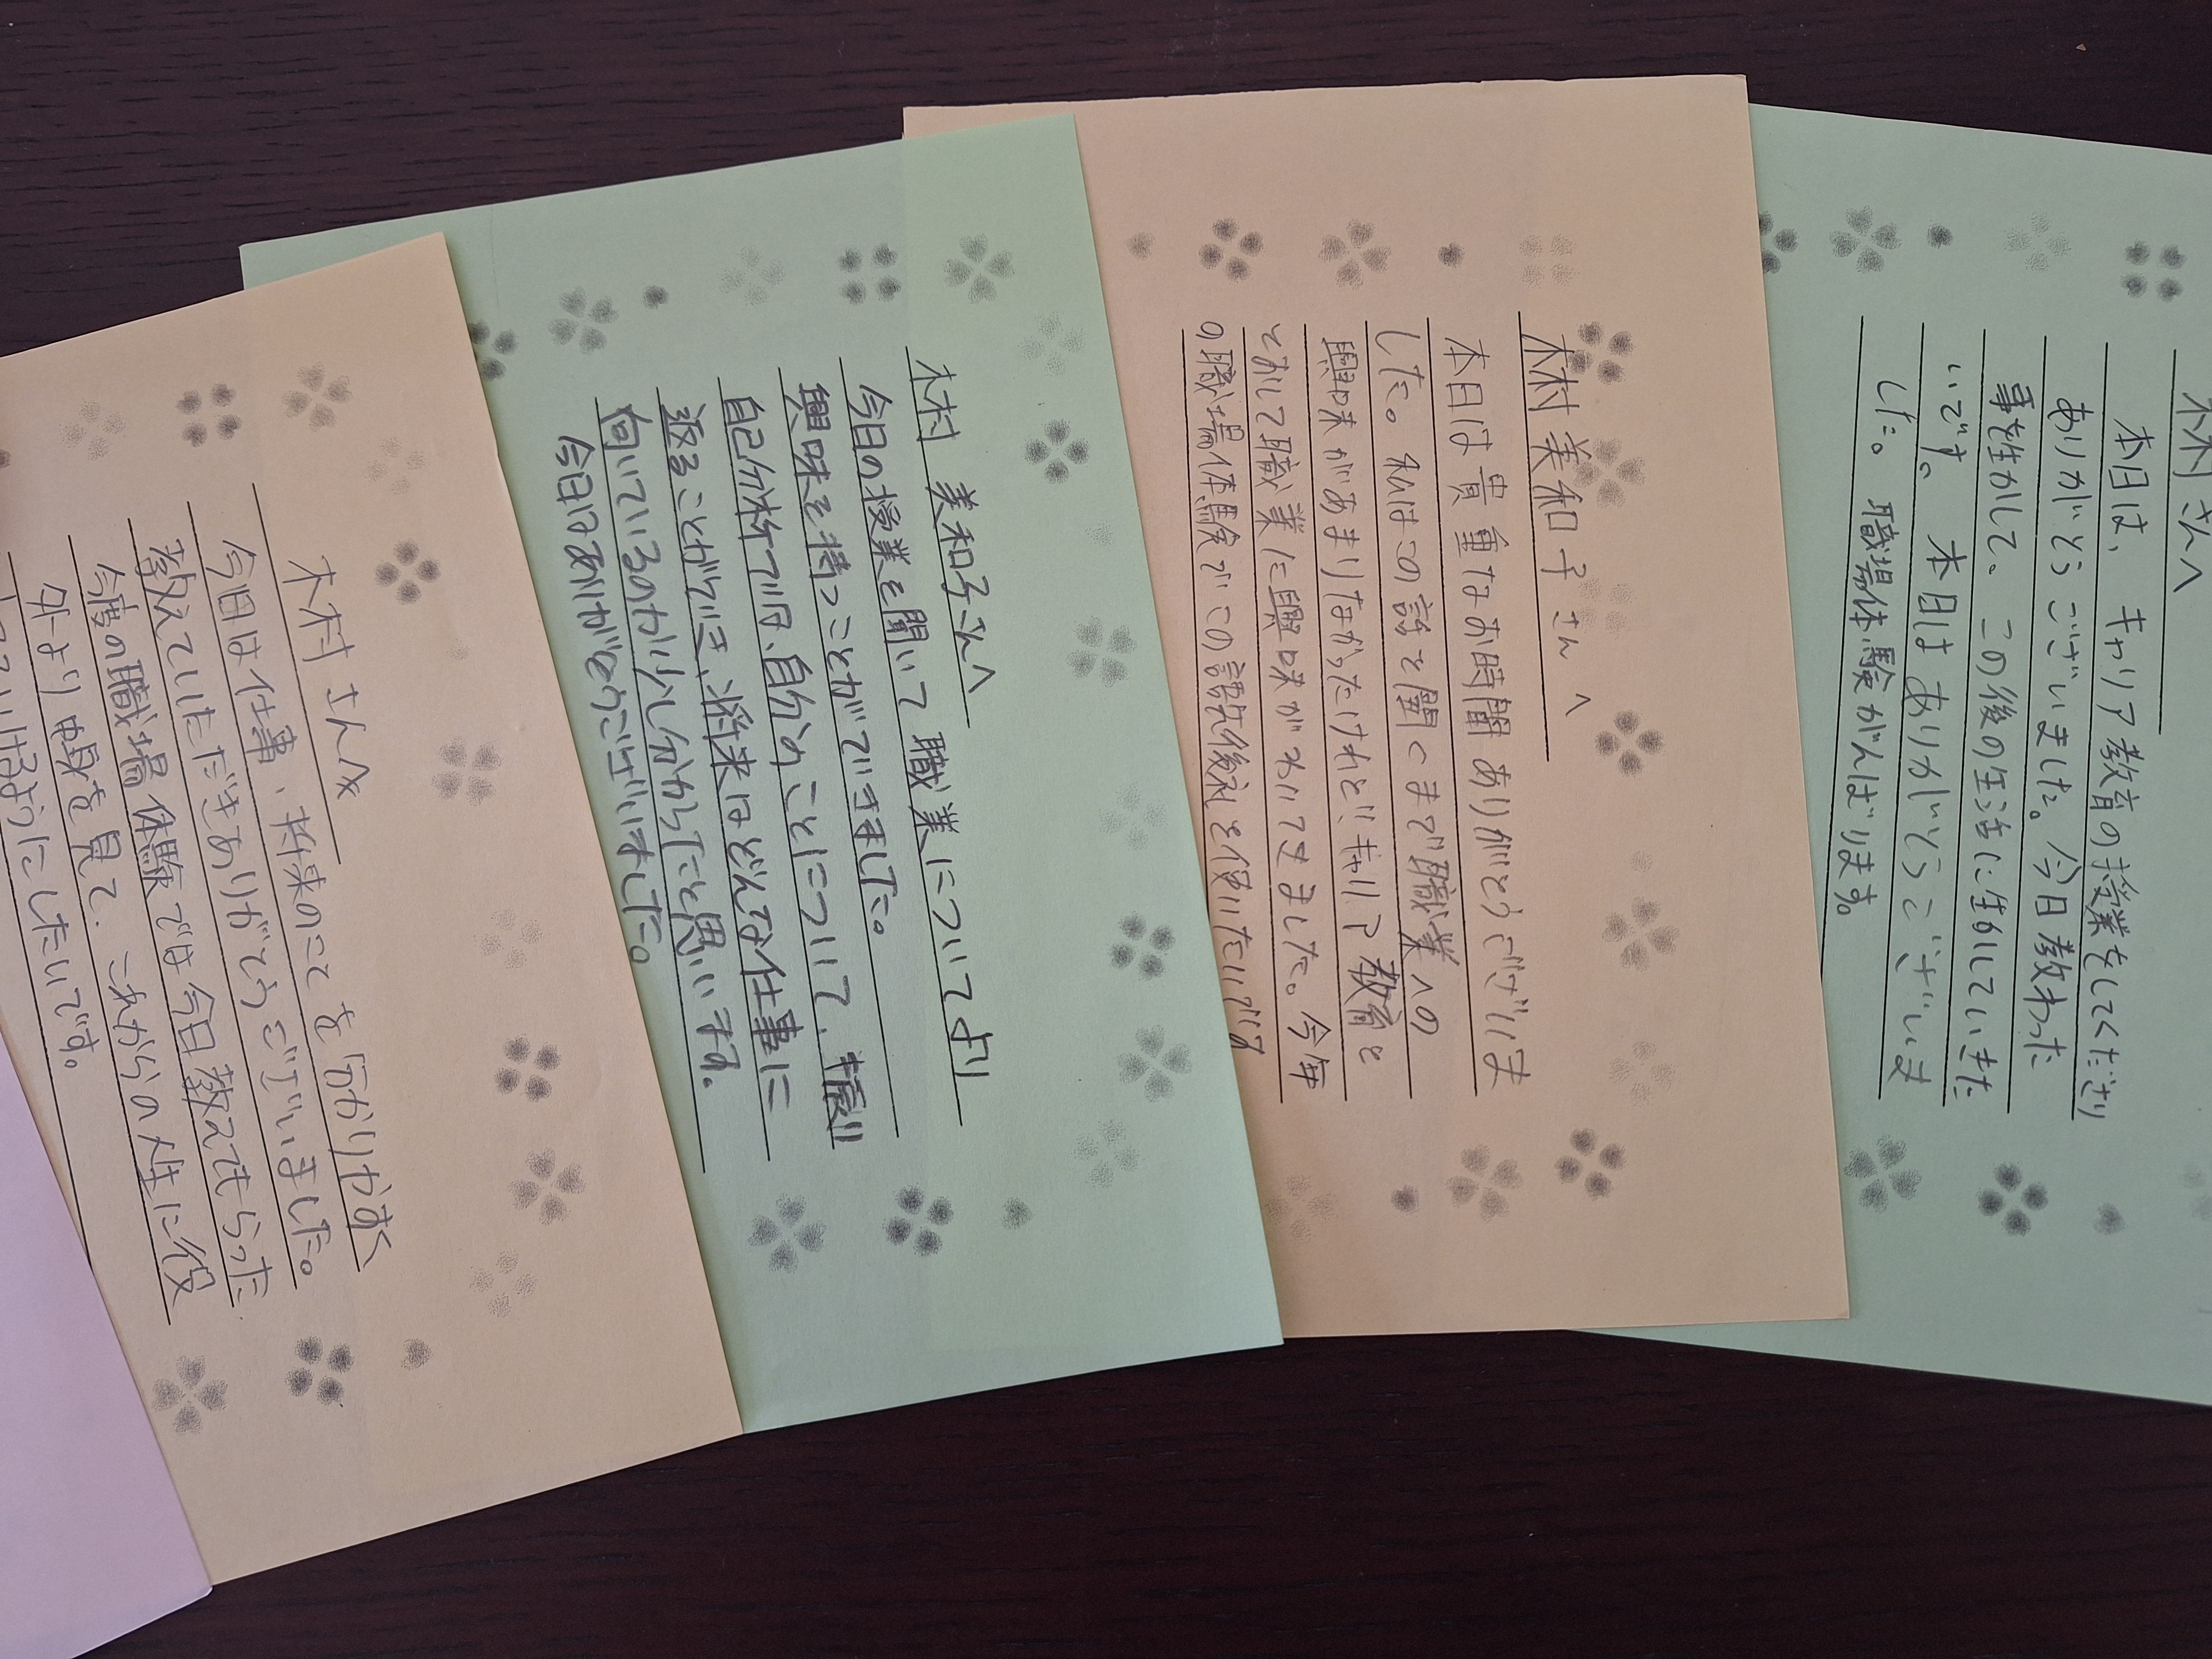 木村さんへ
本日は、キャリア教育の授業をしてくださり
ありがとうございました。今日教わった
事を生かして、この後の生活に生かしていきた
いです。本日はありがとうございま
した。職場体験がんばります。
木村 美和子さんへ
本日は貴重なお時間ありがとうございま
した。私はこの話を聞くまで職業への
興味があまりなかったけれど、キャリア教育を
とおして職業に興味がわいてきました。今年
の職場体験でこの を使いたいです
木村 美和子さんへ
今日の授業を聞いて職業についてより
興味を持つことができました。
自己分析では、自分のことについて、振り
返ることができ、将来はどんな仕事に
向いているのか少し分かったと思います。
今日はありがとうございました。
木村さんへ
今日は仕事、将来のことを分かりやすく
教えていただきありがとうございました。
今度の職場体験では今日教えてもらった
より幅を見て、これからの人生に役
ようにしたいです。